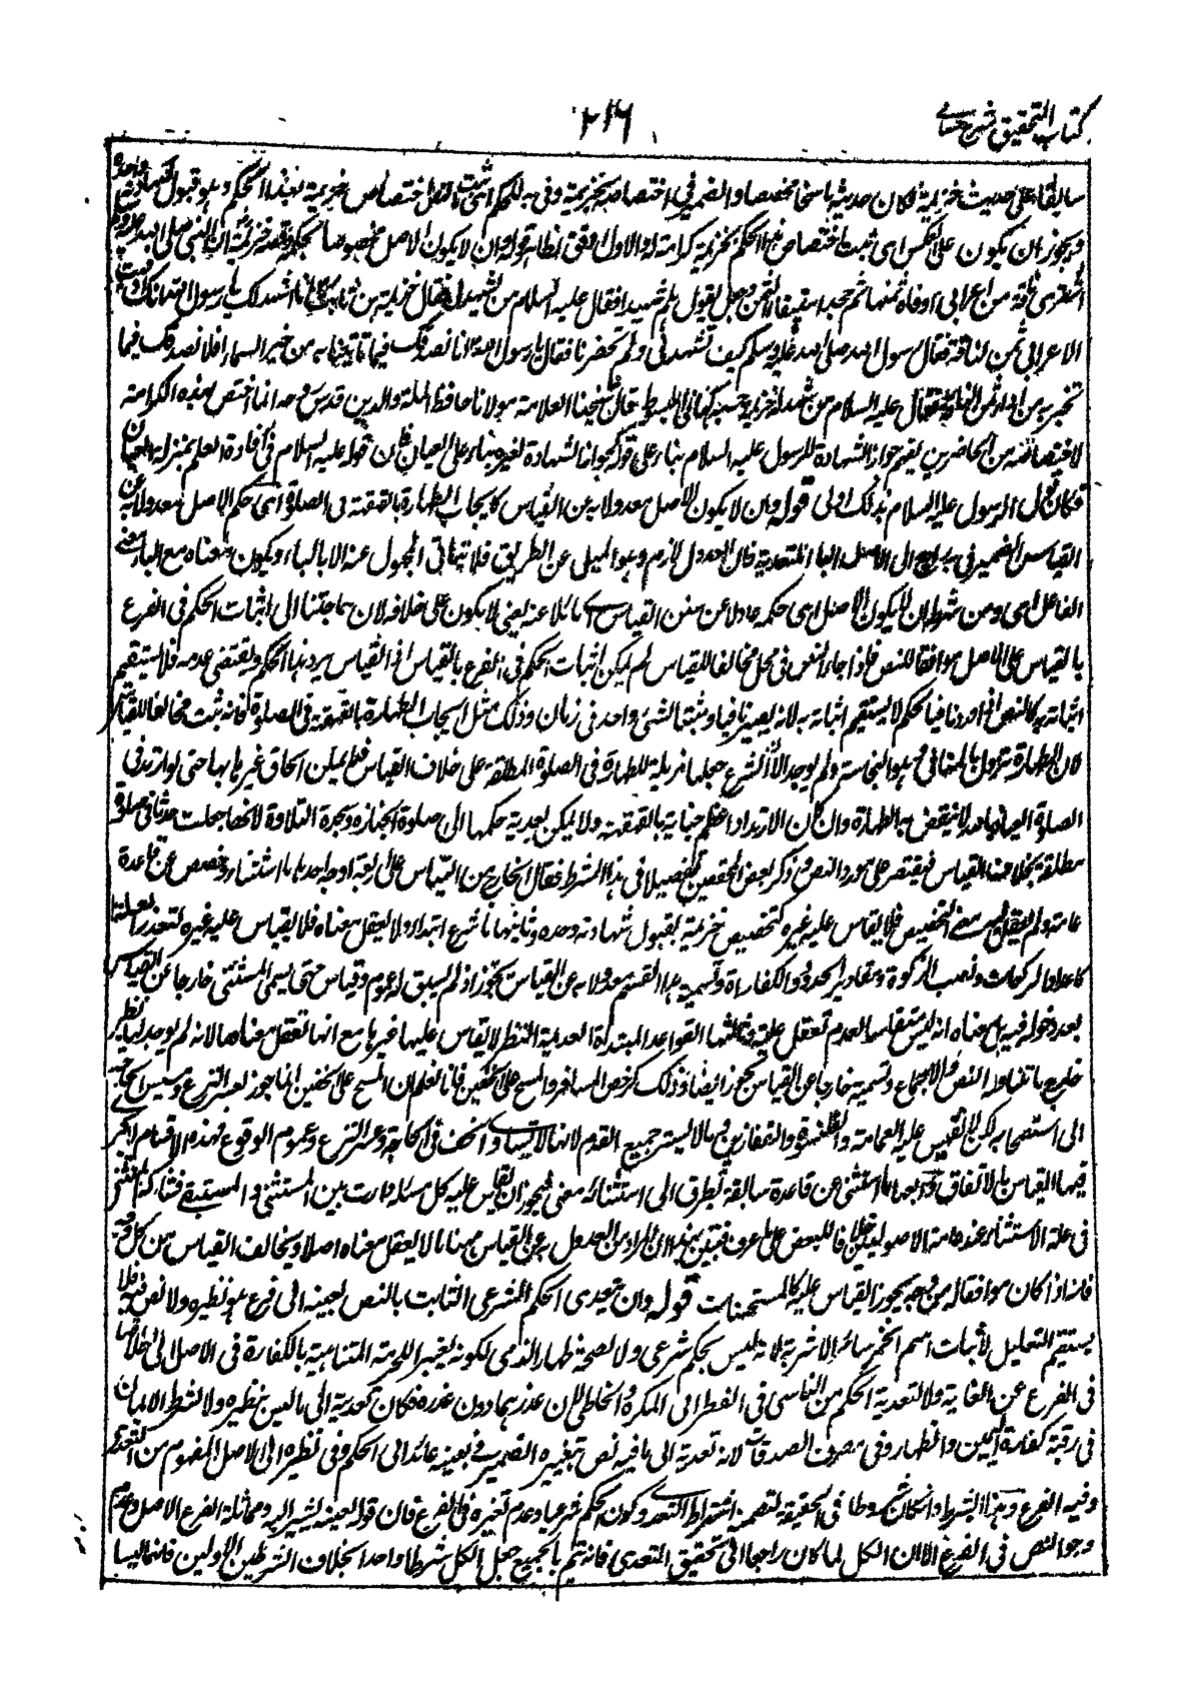 كتاب التحقيق شرح حسامي
٢١٦
سابقا على حديث خزيمة فكان حديثه ناسخا مخصصا والضمير في اختصاصه لخزيمة وفي به للحكم اى ثبت بالنص اختصاص خزيمة بهذا الحكم وهو قبول شهادته وحده
ويجوز ان يكون على العكس اى ثبت اختصاص هذا الحكم بخزيمة كرامة له والاول اوفق لظاهر قوله وان لا يكون الاصل مخصوصا بحكمه وقصة خزيمة ان النبي صلى الله عليه وسلم
اشترى ناقة من اعرابي واوفاه ثمنها ثم جحد استيفاء الثمن وجعل يقول هلم شهيدا فقال عليه السلام من يشهد لى فقال خزيمة بن ثابت انا اشهد لك يا رسول الله انك اوفيت
الاعرابي ثمن الناقة فقال رسول الله صلى الله عليه وسلم كيف تشهد لى ولم تحضرنا فقال يا رسول الله انا نصدقك فيما تاتينا به من خبر السماء افلا نصدقك فيما
تخبر به من اداء ثمن الناقة فقال عليه السلام من شهد له خزيمة فحسبه كذا في المبسوط قال شيخنا العلامة مولانا حافظ الملة والدين قدس روحه انما اختص بهذه الكرامة
لاختصاصه من الحاضرين بفهم جواز الشهادة للرسول عليه السلام بناء على قوله كجواز الشهادة لغيره بناء على العيان فان قوله عليه السلام في افادة العلم بمنزلة العيان
فكان قول الرسول عليه السلام بذلك اولى قوله وان لا يكون الاصل معدولا به عن القياس كايجاب الطهارة بالقهقهة في الصلوة اى حكم الاصل معدولا به عن
القياس الضمير في به راجع الى الاصل والباء للتعدية فان العدول لازم وهو الميل عن الطريق فلا يتأتى المجهول عنه الا بالباء ويكون معناه مع الباء معنى
الفاعل اى ومن شرطه ان لا يكون الاصل اى حكمه عادلا عن سنن القياس اى مائلا عنه يعني لا يكون على خلافه لان حاجتنا الى اثبات الحكم في الفرع
بالقياس على الاصل موافقا للنص فاذا جاء النص في محل مخالفا للقياس لم يمكن اثبات الحكم في الفرع بالقياس اذ القياس يرد هذا الحكم ويقتضي عدمه فلا يستقيم
اثباته به كالنص اذا ورد نافيا لحكم لا يستقيم اثباته به لانه يصير نافيا ومثبتا لشئ واحد في زمان وذلك مثل ايجاب الطهارة بالقهقهة في الصلوة فانه ثبت مخالفا للقياس
لان الطهارة تزول بالمنافي وهو النجاسة ولم يوجد الا ان الشرع جعلها مزيلة للطهارة في الصلوة المطلقة على خلاف القياس فلم يمكن الحاق غيرها بها حتى لو ارتد في
الصلوة العياذ بالله لا ينتقض به الطهارة وان كان الارتداد اعظم جناية بالقهقهة ولا يمكن تعدية حكمها الى صلوة الجنازة وسجدة التلاوة لانها جعلت حدثا في صلوة
مطلقة بخلاف القياس فيقتصر على مورد النص وذكر بعض المحققين تفصيلا في هذا الشرط فقال الخارج عن القياس على اربعة اوجه احدها ما استثني وخصص عن قاعدة
عامة ولم يعقل فيه معنى التخصيص فلا يقاس عليه غيره كتخصيص خزيمة بقبول شهادته وحده وثانيها ما شرع ابتداء ولا يعقل معناه فلا يقاس عليه غيره لتعذر العلة
كاعداد الركعات ونصب الزكوة ومقادير الحدود والكفارات وتسمية هذا القسم معدولا به عن القياس تجوز اذ لم يسبق له عموم وقياس حتى يسمى المستثنى خارجا عن القياس
بعد دخوله فيه بل معناه انه ليس منقاسا لعدم تعقل علته وثالثها القواعد المبتدأة العديمة النظير لا يقاس عليها غيرها مع انها تعقل معناها لانه لم يوجد لها نظير
خارج ما تناوله النص والاجماع وتسميته خارجا عن القياس تجوز ايضا وذلك كرخص المسافر والمسح على الخفين فانا نعلم ان المسح على الخفين انما جوز لعسر النزع ومسيس الحاجة
الى استصحابه لكن لا نقيس عليه العمامة والقلنسوة والقفازين وما لا يستر جميع القدم لانها لا تساوى الخف في الحاجة وعسر النزع وعموم الوقوع فهذه الاقسام لا يجرى
فيها القياس بالاتفاق ورابعها ما استثنى عن قاعدة سابقة تطرق الى استثنائه معنى فيجوز ان يقاس عليه كل مسئلة دارت بين المستثنى والمستبقى فشاركت المستثنى
في علة الاستثناء عند عامة الاصوليين خلافا للبعض على ما عرف فتبين بهذا ان المراد من المعدول به عن القياس ههنا ما لا يعقل معناه اصلا ويخالف القياس من كل وجه
فانه اذا كان موافقا له من وجه يجوز القياس عليه كالمستحسنات قوله وان يتعدى الحكم الشرعي الثابت بالنص بعينه الى فرع هو نظيره ولا نص فيه فلا
يستقيم التعليل لاثبات اسم الخمر لسائر الاشربة لانه ليس بحكم شرعي ولا لصحة ظهار الذمي لكونه تغييرا للحرمة المتناهية بالكفارة في الاصل الى اطلاقها
في الفرع عن الغاية ولا لتعدية الحكم من الناسي في الفطر الى المكره والخاطي لان عذرهما دون عذره فكان تعدية الى ما ليس بنظيره ولا لشرط الايمان
في رقبة كفارة اليمين والظهار وفي مصرف الصدقات لانه تعدية الى ما فيه نص بتغييره الضمير في بعينه عائد الى الحكم وفي نظيره الى الاصل المفهوم من التعدى
وفيه الفرع وهذا الشرط وان كان شروطا في الحقيقة لتضمنه اشتراط التعدى وكون الحكم شرعيا وعدم تغيره في الفرع فان قوله بعينه يشير اليه ومماثلة الفرع الاصل وعدم
وجود النص في الفرع الا ان الكل لما كان راجعا الى تحقيق التعدى فانه يتم بالجميع جعل الكل شرطا واحدا بخلاف الشرطين الاولين فانهما ليسا